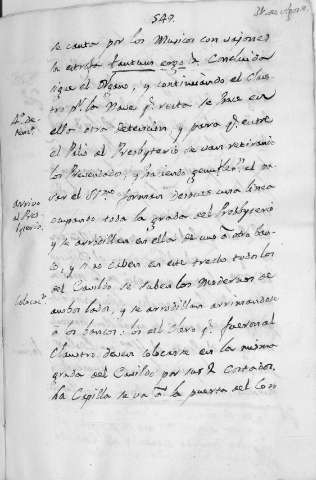 549.
se canta por los Musicos con vajones
la estrofa Tantum ergo &. Concluida
sigue el Organo, y continuando el Claus
tro pr. la Nave q.e resta se hace en
ella otra Detencion, y para q.e entre
el Palio al Presbyterio se van retirando
los Prevendados, y haciendo genuflex.n al pa
sar el SS.mo forman despues una linea
ocupando toda la grada del Presbyterio
y se arrodillan en ella de uno a otro ban
do, y si no caben en este trecho todos los
del Cavildo se suben los Modernos de
ambos lados, y se arrodillan arrimandose
a los bancos: los del Clero q.e fueron al
Claustro deven colocarse en la misma
grada del Cavildo por sus
ha Capilla se va a la puerta del Con
4.a de
ten.n
arrivo
al Pres
byterio.
colocac.n